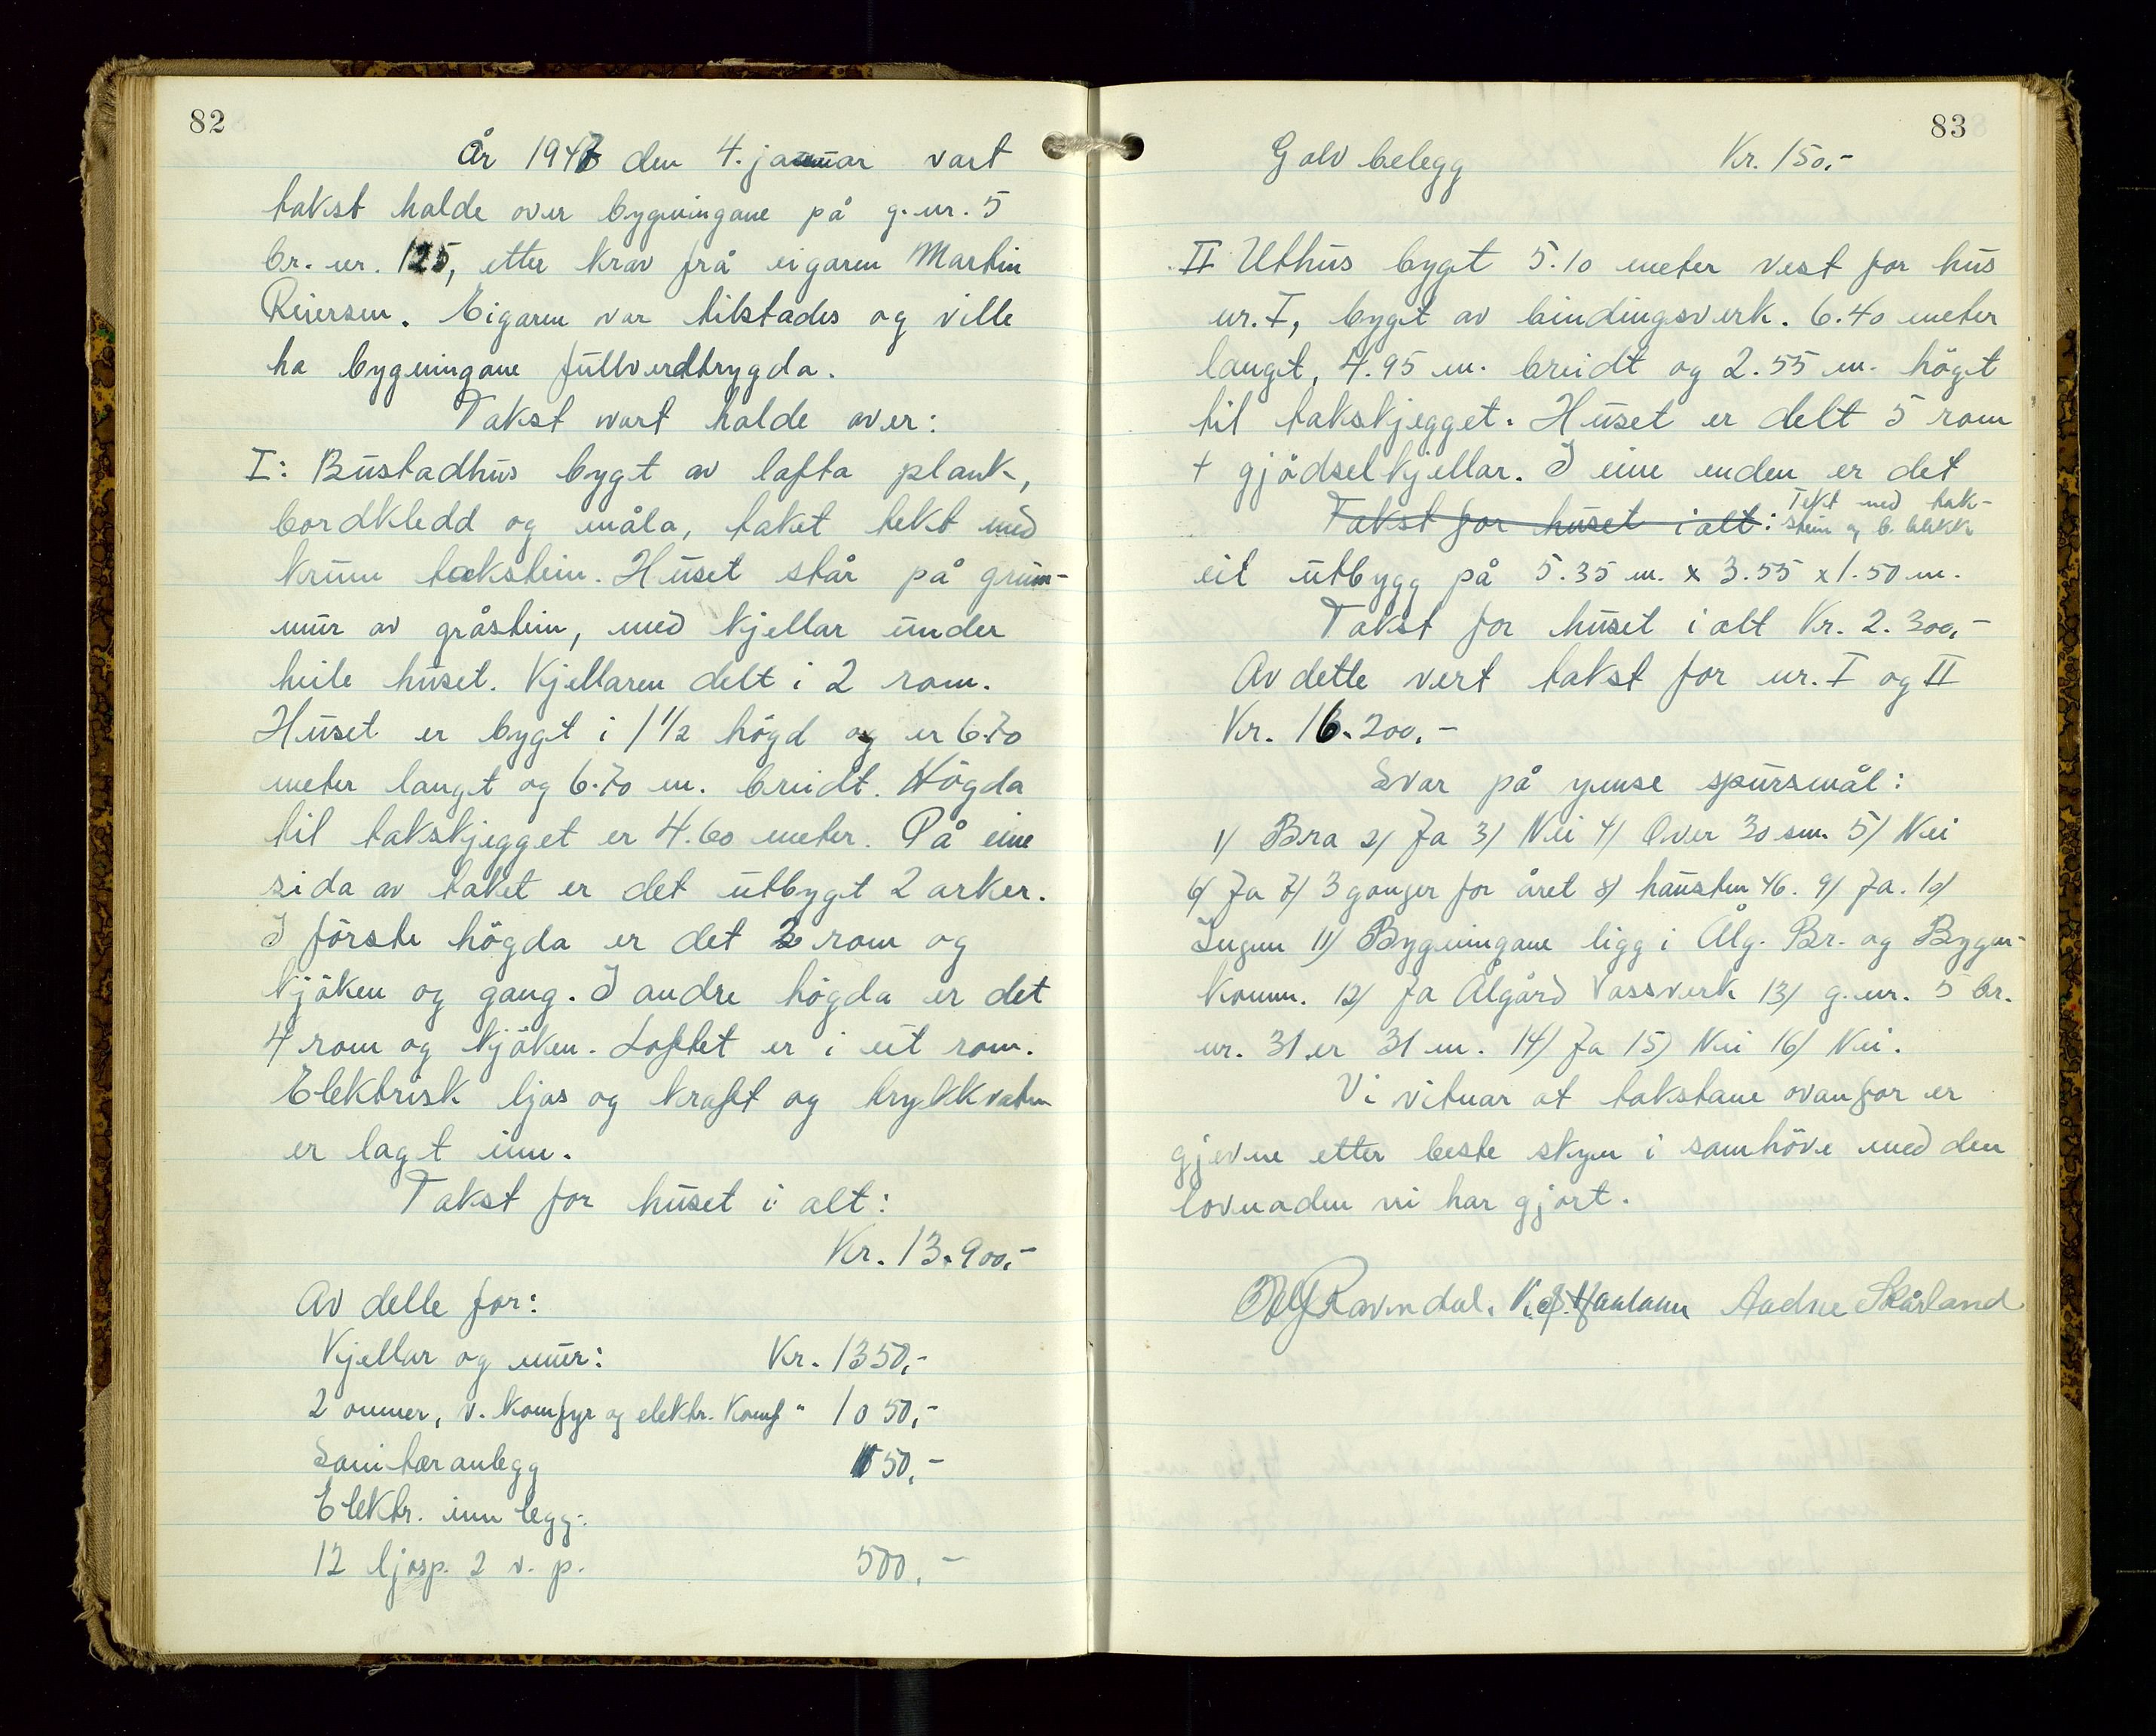 82
År 1947 den 4. januar vart
takst halde over bygningane på g.nr. 5
br.nr. 125, etter krav frå eigaren Martin
Reiersen. Eigaren var tilstades og ville
ha bygningane fullverdtrygda.
Takst vart halde over:
I: Bustadhus bygt av lafta plank,
bordkledd og måla, taket tekt med
krum takstein. Huset står på grun-
mur av gråstein, med kjellar under
heile huset. Kjellaren delt i 2 rom.
Huset er bygt i 1 1/2 högd og er 6.70
meter langt og 6.70 m. breidt. Högda
til takskjegget er 4.60 meter. På eine
sida av taket er det utbygt 2 arker.
I förste högda er det 3 rom og
kjöken og gang. I andre högda er det
4 rom og kjöken. Loftet er i eit rom.
Elektrisk ljos og kraft og trykkvatn
er lagt inn.
Takst for huset i alt:
Kr. 13.900,-
Av dette for:
Kjellar og mur: Kr. 1350,-
2 omner, v. komfyr og elektr. Komf " 1050,-
Sanitæranlegg 150,-
Elektr. innlegg:
12 ljosp. 2 v. p. 500,-
83
Golvbelegg Kr. 150,-
II Uthus bygt 5.10 meter vest for hus
nr. I, bygt av bindingsverk. 6.40 meter
langt, 4.95 m. breidt og 2.55 m. högt
til takskjegget. Huset er delt 5 rom
+ gjödselkjellar. I eine enden er det
Takst for huset ialt: Tekt med tak-
stein og b. blekk
eit utbygg på 5.35 m. x 3.55 x 1.50 m.
Takst for huset ialt Kr. 2.300,-
Av dette vert takst for nr. I og II
Kr. 16.200,-
Svar på ymse spursmål:
1/ Bra 2/ Ja 3/ Nei 4/ Over 30 sm. 5/ Nei
6/ Ja 7/ 3 gonger for året 8/ hausten 46. 9/ Ja. 10/
Ingen 11/ Bygningane ligg i Ålg. Br. og Bygn-
komm. 12/ Ja Ålgård Vassverk 13/ g.nr. 5 br.
nr. 31 er 31 m. 14/ Ja 15/ Nei 16/ Nei.
Vi vitnar at takstane ovanfor er
gjevne etter beste skyn i samhöve med den
lovnaden vi har gjort.
Ravndal. Haaland Aadne Skårland